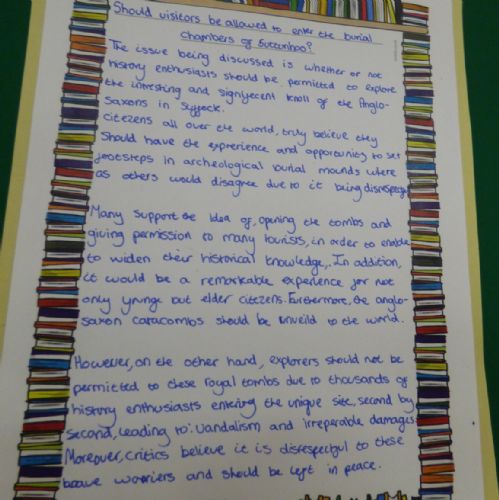 Should visitors be allowed to enter the burial
chambers of Suttonhoo?
The issue being discussed is whether or not
history enthusiasts should be permitted to explore
the intresting and signifecent knoll of the Anglo-
saxons in Suffock.
citezens all over the world, truly believe they
should have the experience and opporounity to set
footsteps in archeological burial mounds where
as others would disagree due to it being disrespecful
Many support the idea of, opening the tombs and
giving permission to many tourists, in order to enable
to widen their historical knowledge,. In addition,
it would be a remarkable experience for not
only younge but elder citezens. Furthermore, the anglo-
saxon catacombs should be unveild to the world.
However, on the other hand, explorers should not be
permitted to these royal tombs due to thousands of
history enthusiasts entering the unique site, second by
second, leading to: vandalism and irreperable damages.
Moreover, critics believe it is disrespectful to these
brave worriers and should be left in peace.